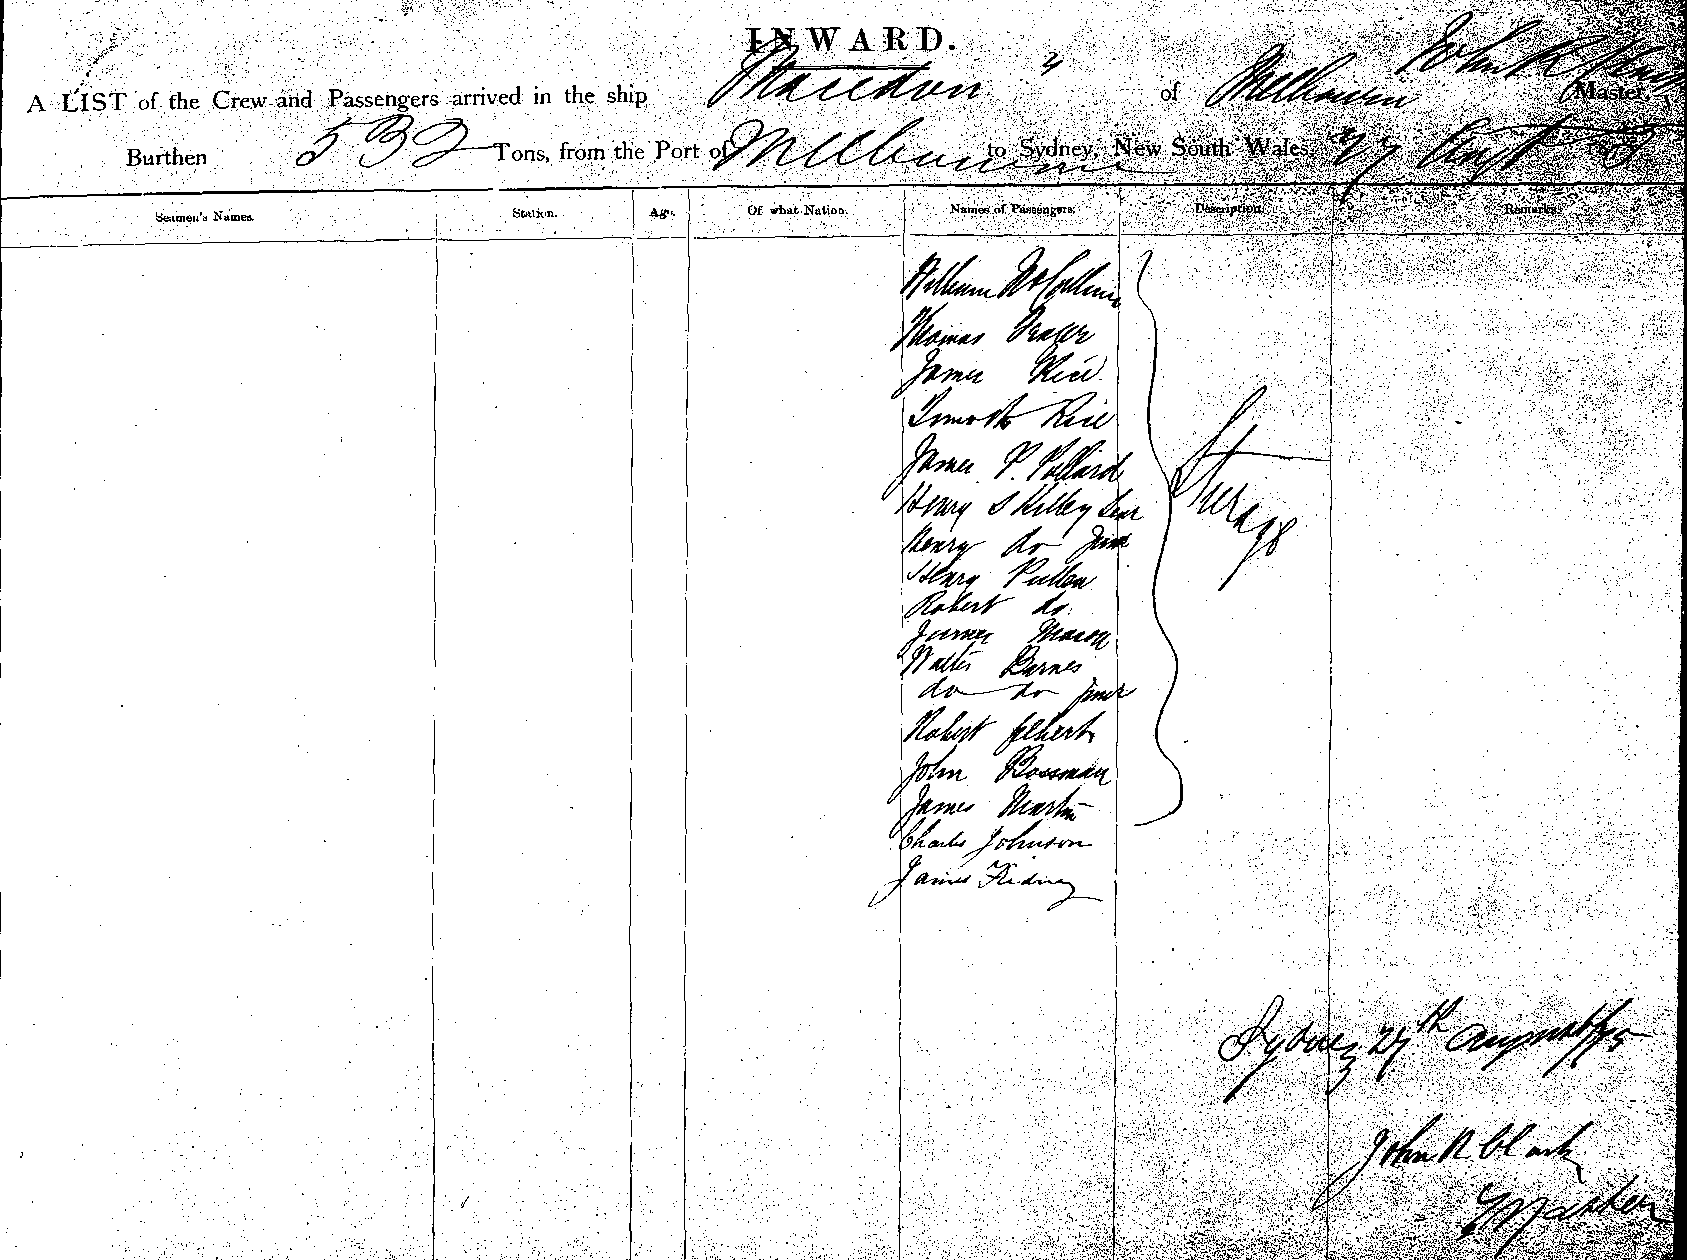 INWARD.
A LIST of the Crew and Passengers arrived in the ship Macedon of Melbourne John R Clark Master,
Burthen 532 Tons, from the Port of Melbourne to Sydney, New South Wales, 27 Augst
Seamen's Names. Station. Age. Of what Nation. Names of Passengers. Description. Remarks.
William McCallum
Thomas Frazer
James Rice
Timoth Rice
James P. Pollard
Henry S Kilbey Senr
Henry do Junr
Henry Pullen
Robert do
James Mason
Walter Barnes
do do Junr
Robert
John Bossman
James Martin
Charles Johnson
James
Steerage
Sydney 27th August
John R Clark
Master